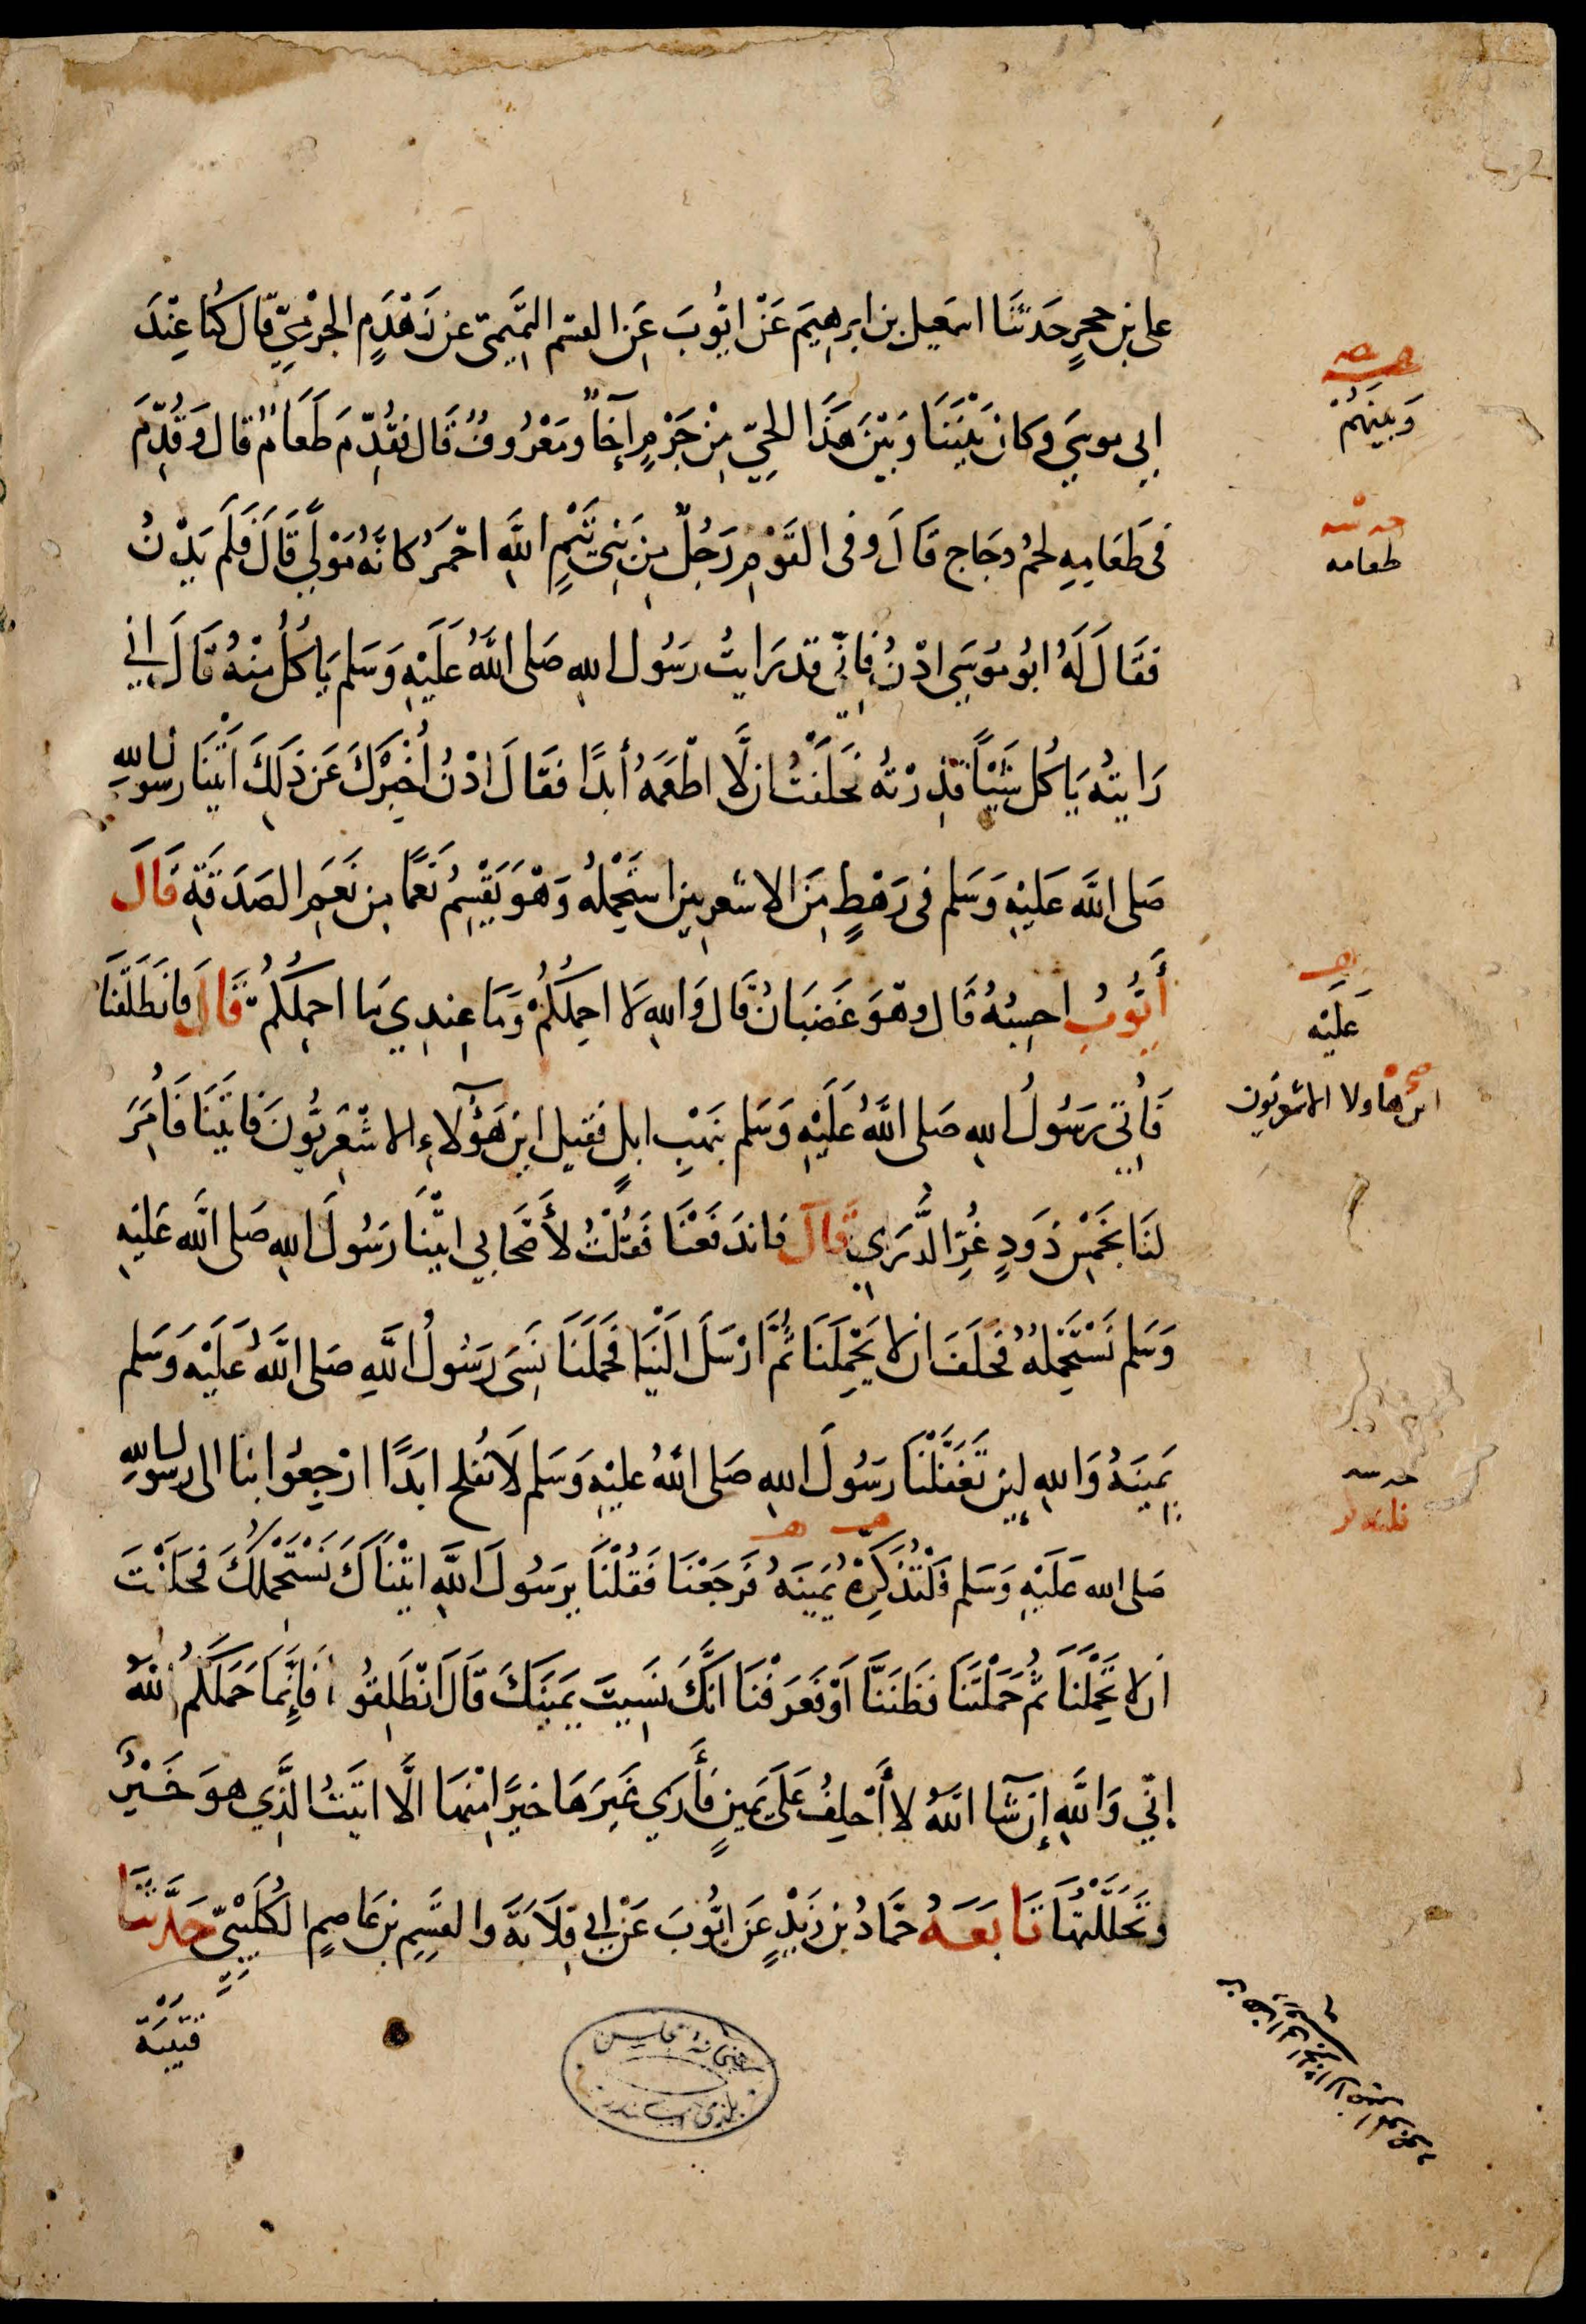 على بن حجرٍ حَدثنَا اسمعيل بن ابرهيمَ عَنْ ايُّوبَ عَنِ القسم التَّمِيمىّ عن زَهْدَمٍ الجرْمِيّ قال كُنَّا عِنْدَ
ابى موسَى وكان بَيْنَنَا وَبَيْنَ هَذَا الحيّ مِنْ جَرْمٍ اِخَآءٌ ومَعْرُوفٌ قَال فقُدّمَ طَعَامٌ قال وَقُدّمَ
فى طَعَامِهِ لحمُ دجَاج قَالَ وفى القَوْمِ رَجُلٌ مِن بَنِى تَيْمِ اللهِ احْمَرُ كانَّهُ مَوْلًى قَالَ فَلَم يَدْنُ
فقَالَ لَهُ ابُو مُوسَى ادْنُ فَإِنّى قد رَايتُ رَسُول اللهِ صَلى اللهُ عَلَيْهِ وَسَلم يَاكُلُ مِنْهُ قَالَ انى
رَايتُه يَاكُل شَيْئاً قَذِرْتُه فحَلَفْتُ ان لَّا اطْعَمَهُ أبدًا فقَالَ ادْنُ اُخْبِرْكَ عَن ذَلِكَ اتَيْنَا رسول اللهِ
صَلى اللهُ عَليْهِ وَسَلم فى رَهْطٍ مِنَ الاشعرِيين استَحْمِلُهُ وَهْوَ يَقْسِمُ نَعَمًا مِن نَعَمِ الصَدَقَةِ قَالَ
أَيُّوبُ احسِبُهُ قَال وهْوَ غَضبَانُ قَال وَاللهِ لا احمِلكُمْ وَمَا عِندِى مَا احمِلكُمْ قَالَ فَانطَلَقْنَا
فَأُتِى رَسُولُ اللهِ صَلى اللهُ عَلَيْهِ وَسَلم بنَهْبِ ابلٍ فقيل اين هَؤُلآءِ الاشْعَرِيُّونَ فاتَيْنَا فَأمَرَ
لنَا بخَمْسِ ذَودٍ غُرِّ الذُّرَى قَالَ فاندَفَعْنَا فَقُلْتُ لأَصْحَابِى اتيْنَا رَسُولَ اللهِ صَلى اللهُ عَليْهِ
وَسَلم نَسْتَحْمِلُهُ فحَلَفَ ان لا يَحْمِلَنَا ثُمَّ ارْسَلَ اليْنَا فحَمَلَنَا نَسِىَ رَسُولُ اللهِ صَلى اللهُ عَلَيْهِ وَسَلم
يَمِينَهُ وَاللهِ لَئِن تَغَفَّلْنَا رَسُولَ اللهِ صَلى اللهُ عليْهِ وَسَلم لَا نُفلح ابَدًا ارْجِعُوا بنَا الى رسول اللهِ
صَلى الله عَلَيْهِ وَسَلم فَلْنُذَكِّرْهُ يَمينَهُ فَرَجَعْنَا فَقُلْنَا يرَسُولَ اللهِ اتيْنَاكَ نَسْتَحْمِلُكَ فحَلَفْتَ
اَن لا تَحْمِلَنَا ثُمَّ حَمَلْتَنَا فَظَنَنَّا اَوْ فَعَرَفْنَا انَّكَ نَسِيتَ يمَينَكَ قَالَ انْطَلِقُوا فَإِنَّمَا حَمَلَكُمُ اللهُ
إنّى وَاللهِ إِن شَآ اللهُ لا أَحْلِفُ عَلَى يَمينٍ فَأَرَى غَيرَهَا خيرًا مِنْهَا الَّا اتَيتُ الَّذِى هوَ خَيْرٌ
وتَحَلَّلْتُهَا تَابَعَهُ حمَّادُ بن زَيْدٍ عَن ايُّوبَ عَنْ ابى قِلَابَةَ والقسِمِ بن عَاصِمٍ الكُلَيْبِىّ حَدَّثنَا
قتَيْبَة
وَبَينَهُمْ
طعامه
عَليْه
اين هاولا الاشعريون